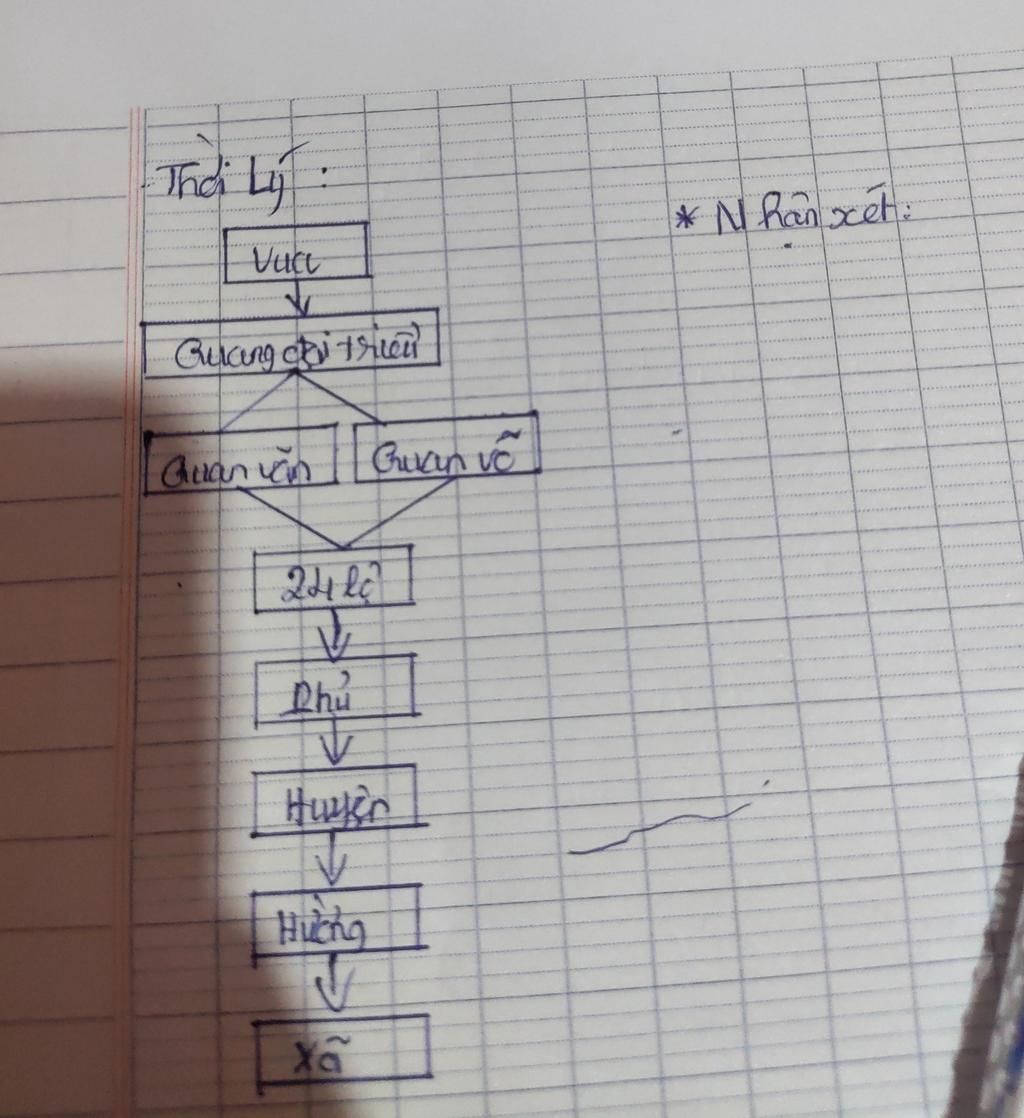 Thời Lý :
* Nhận xét:
Vua
Quan đại triều
Quan văn
Quan võ
24 lộ
Phủ
Huyện
Hường
Xã